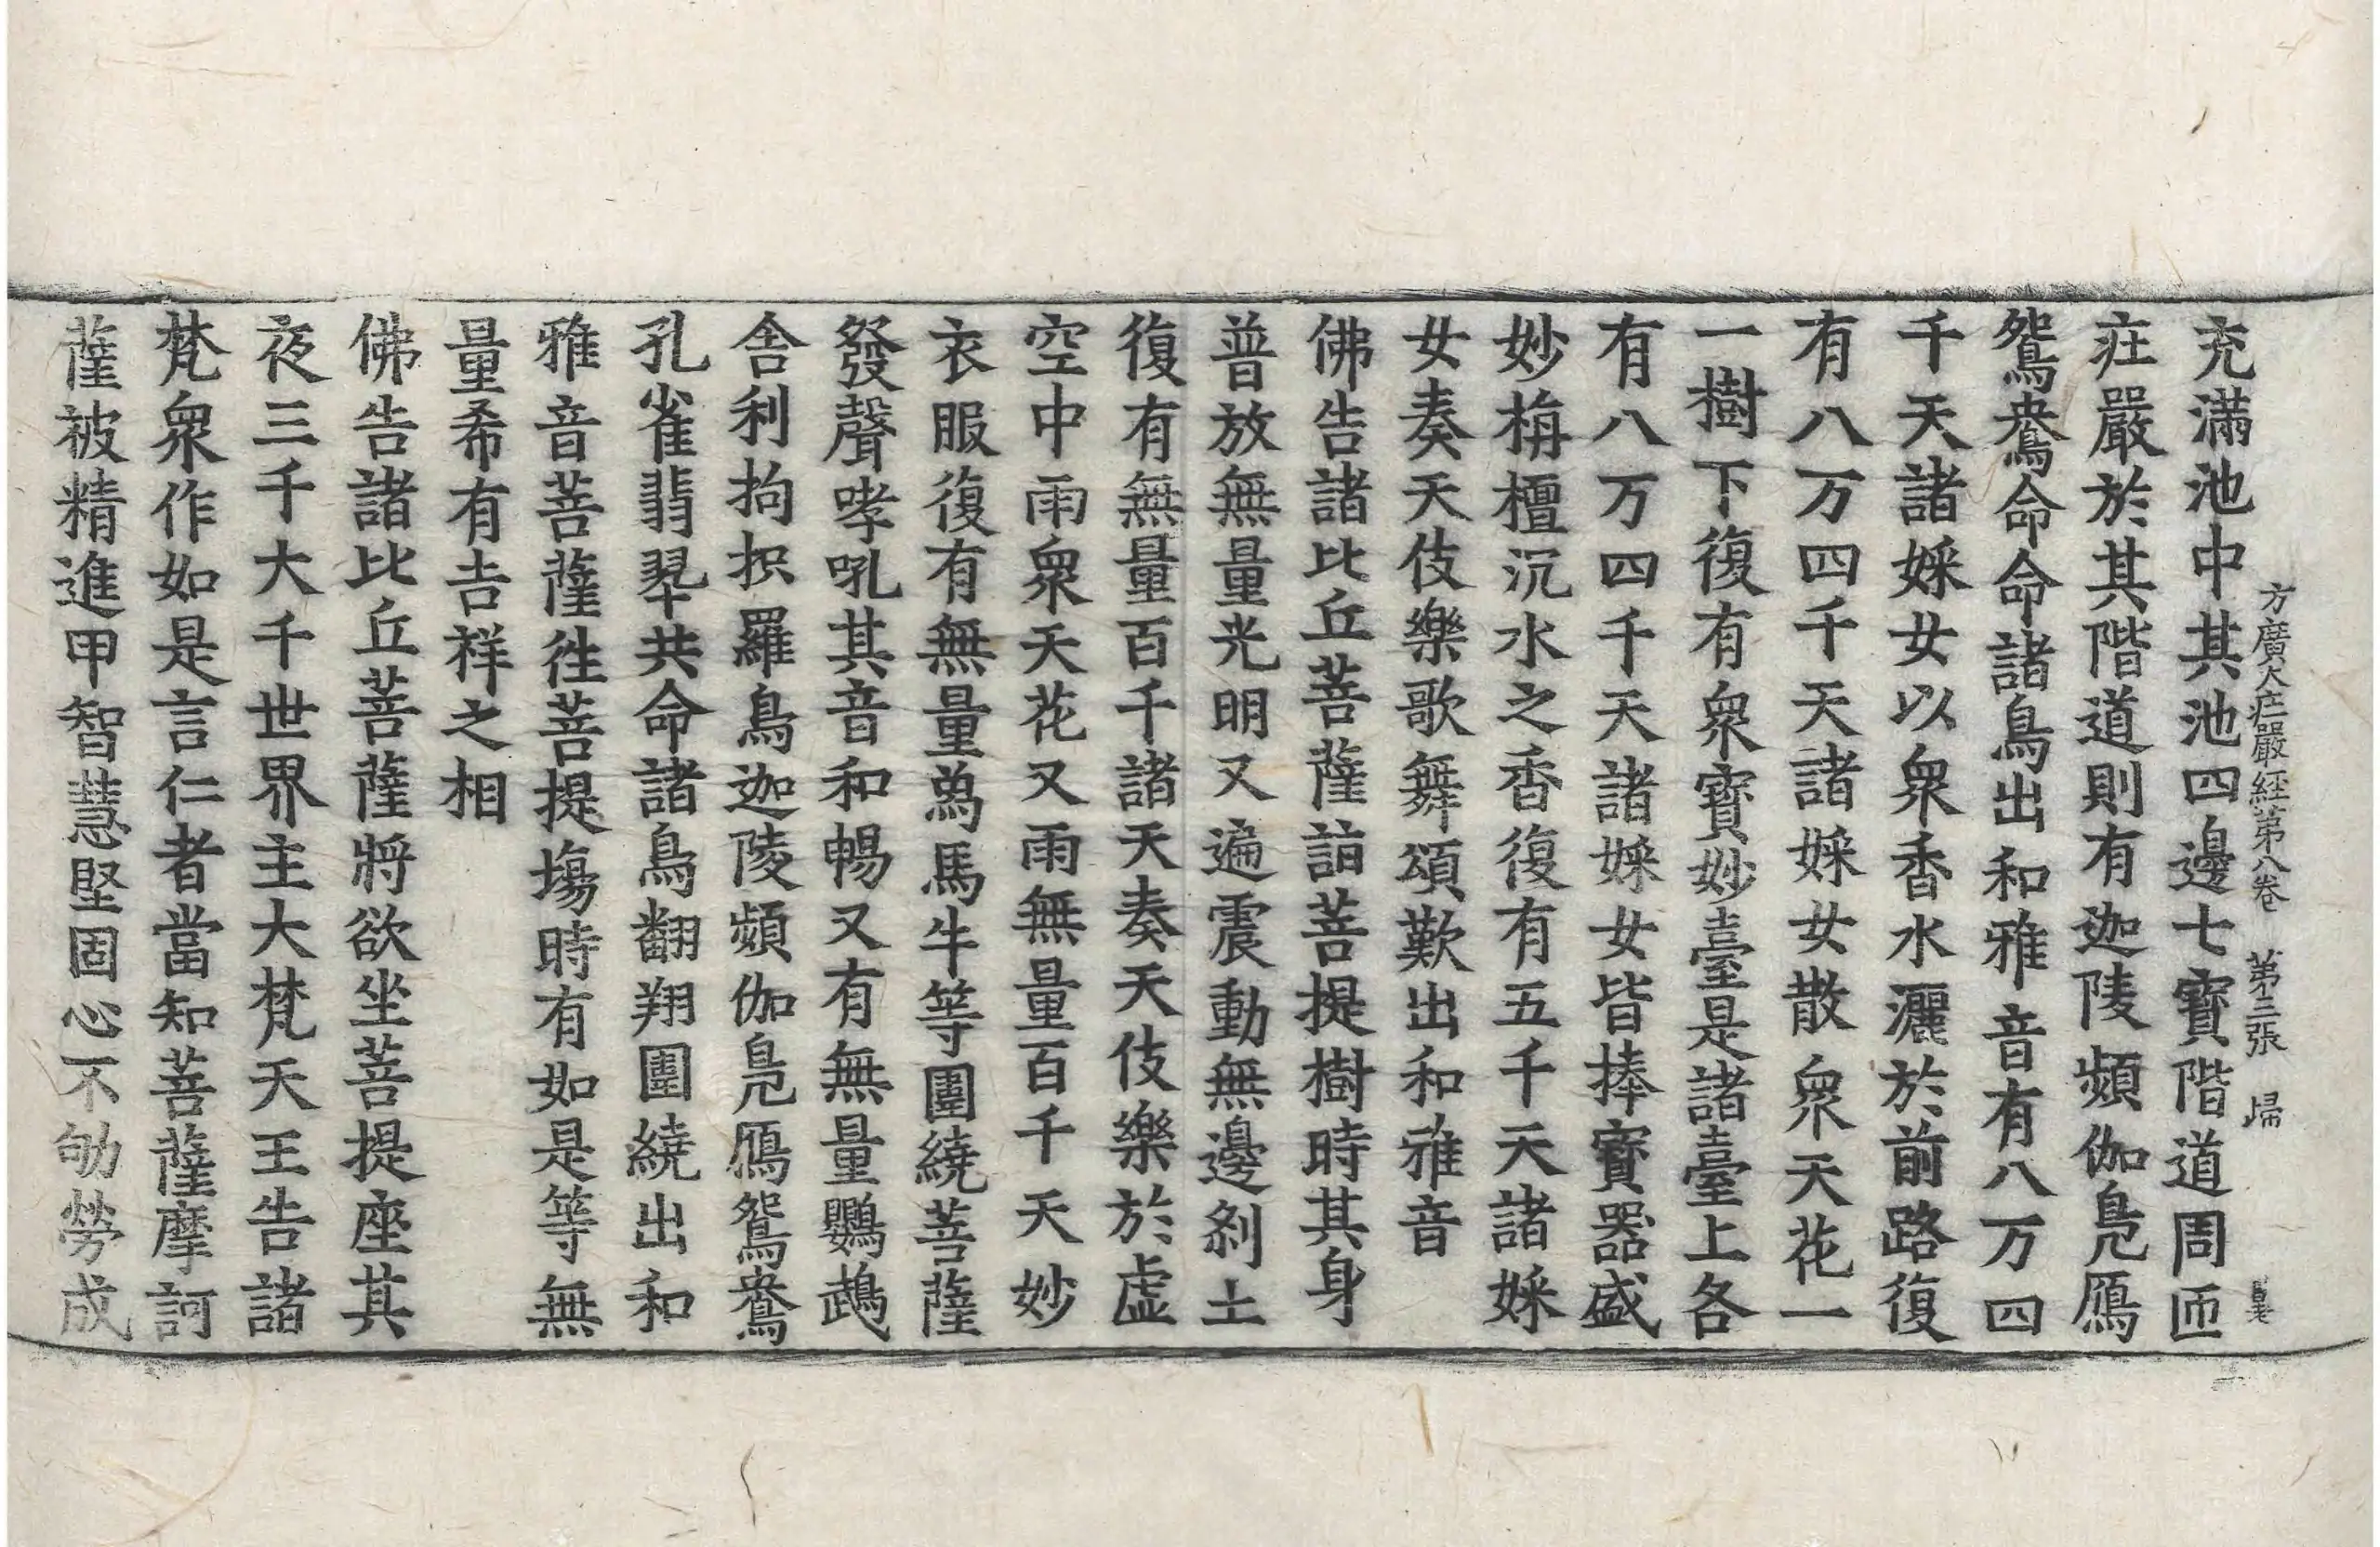 方廣大疰嚴經第八卷 第三張 㱕
充滿池中其池四邊七寶階道周匝
疰嚴於其階道則有迦陵頻伽鳧鴈
鴛鴦命命諸鳥出和雅音有八万四
千天諸婇女以衆香水灑於前路復
有八万四千天諸婇女散衆天花一
一樹下復有衆寶妙臺是諸臺上各
有八万四千天諸婇女皆捧寶器盛
妙栴檀沉水之香復有五千天諸婇
女奏天伎樂歌舞頌歎出和雅音
佛告諸比丘菩薩詣菩提樹時其身
普放無量光明又遍震動無邊剎土
復有無量百千諸天奏天伎樂於虛
空中雨衆天花又雨無量百千天妙
衣服復有無量爲馬牛等圍繞菩薩
發聲哮吼其音和暢又有無量鸚鵡
舍利拘抧羅鳥迦陵頻伽鳧鴈鴛鴦
孔雀翡翠共命諸鳥翻翔圍繞出和
雅音菩薩徃菩提塲時有如是等無
量希有吉祥之相
佛告諸比丘菩薩將欲坐菩提座其
夜三千大千世界主大梵天王告諸
梵衆作如是言仁者當知菩薩摩訶
薩被精進甲智慧堅固心不劬勞成